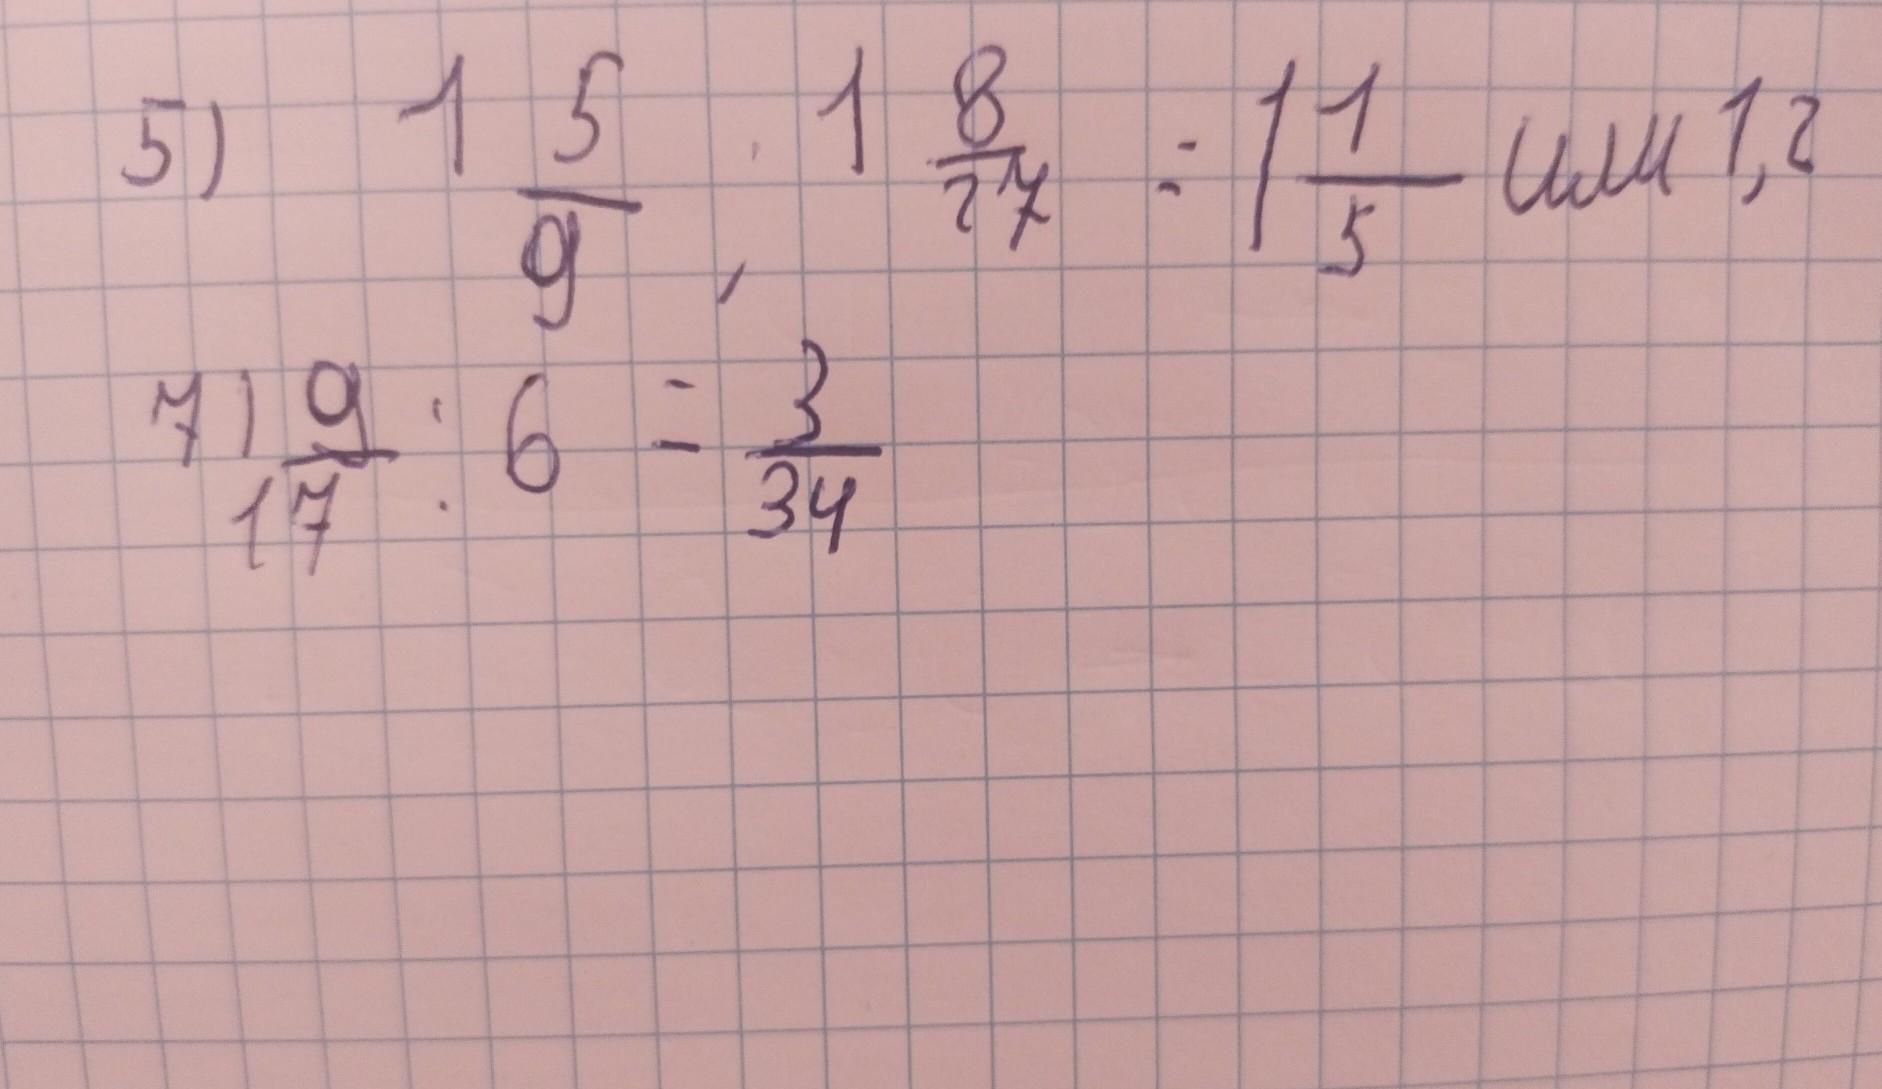 5) 1 5/9 : 1 8/27 = 1 1/5 или 1,2
7) 9/17 : 6 = 3/34